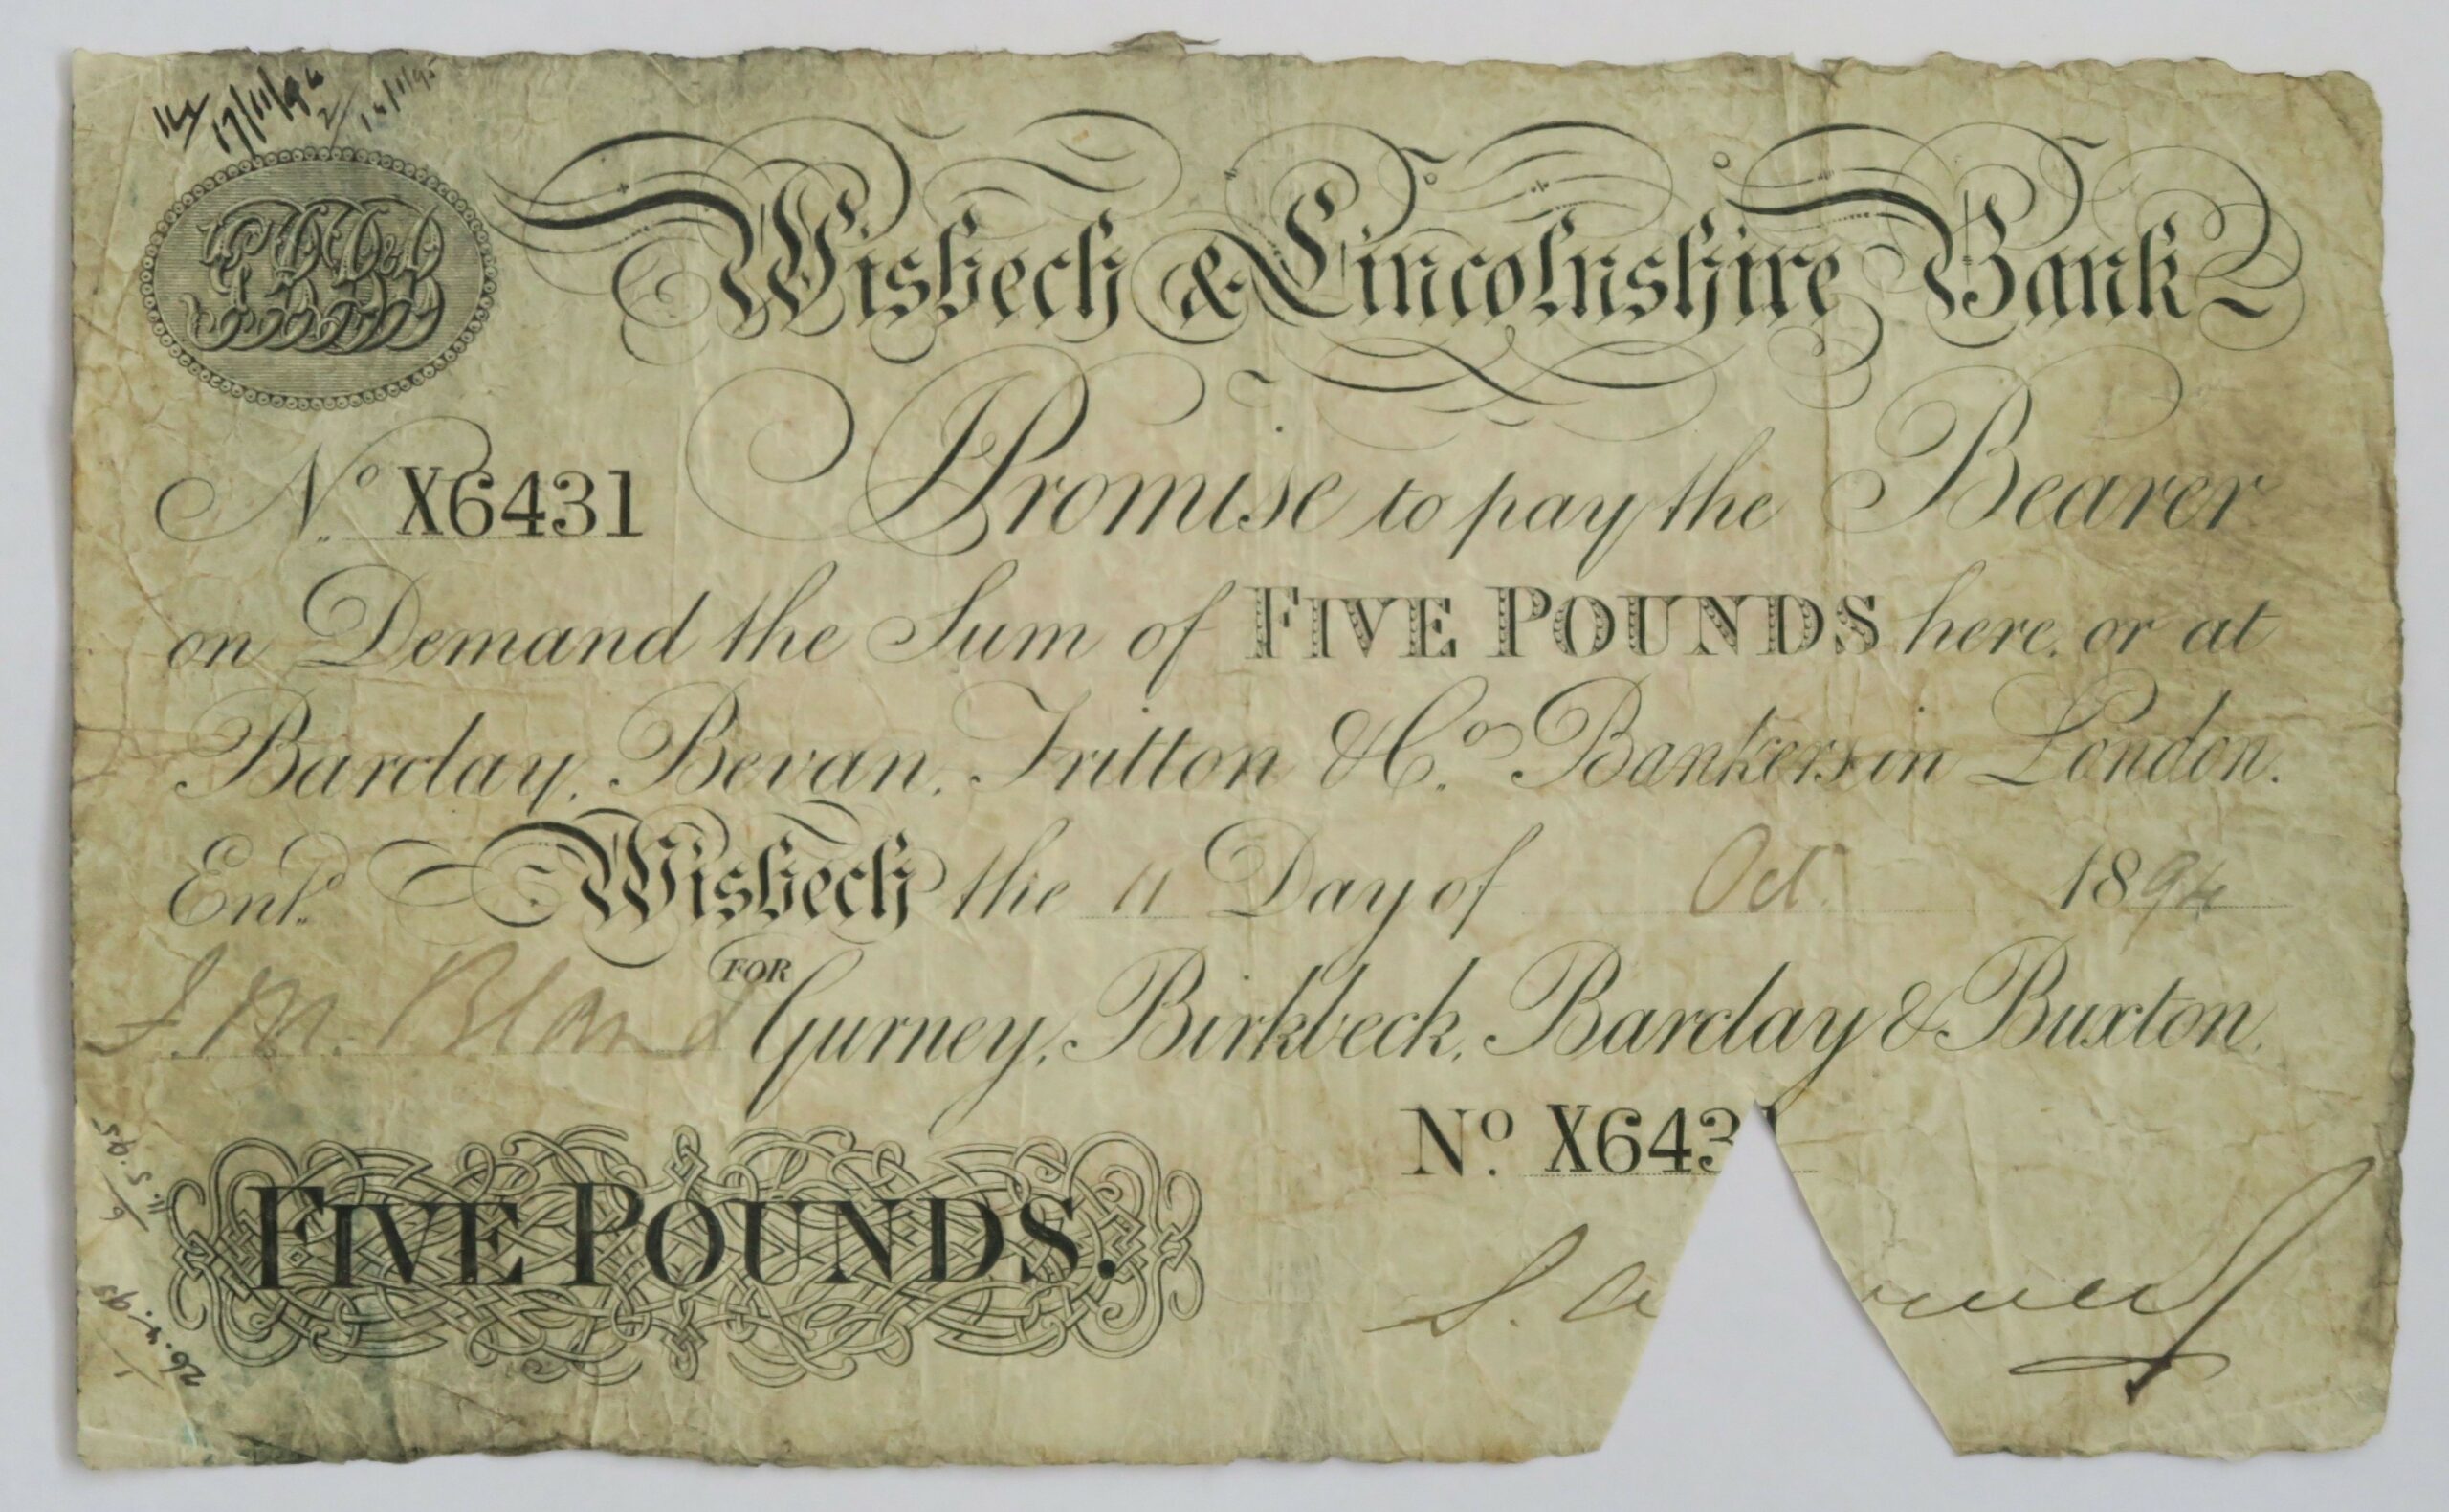 17/11/94
14/11/95
Wisbech & Lincolnshire Bank
No X6431 I Promise to pay the Bearer
on Demand the Sum of FIVE POUNDS here, or at
Barclay, Bevan, Tritton & Co. Bankers in London.
Entd. Wisbech the 11 Day of Oct 1894
J. M. Bland FOR Gurney, Birkbeck, Barclay & Buxton.
No. X6431
FIVE POUNDS.
11.5.95
26.4.95